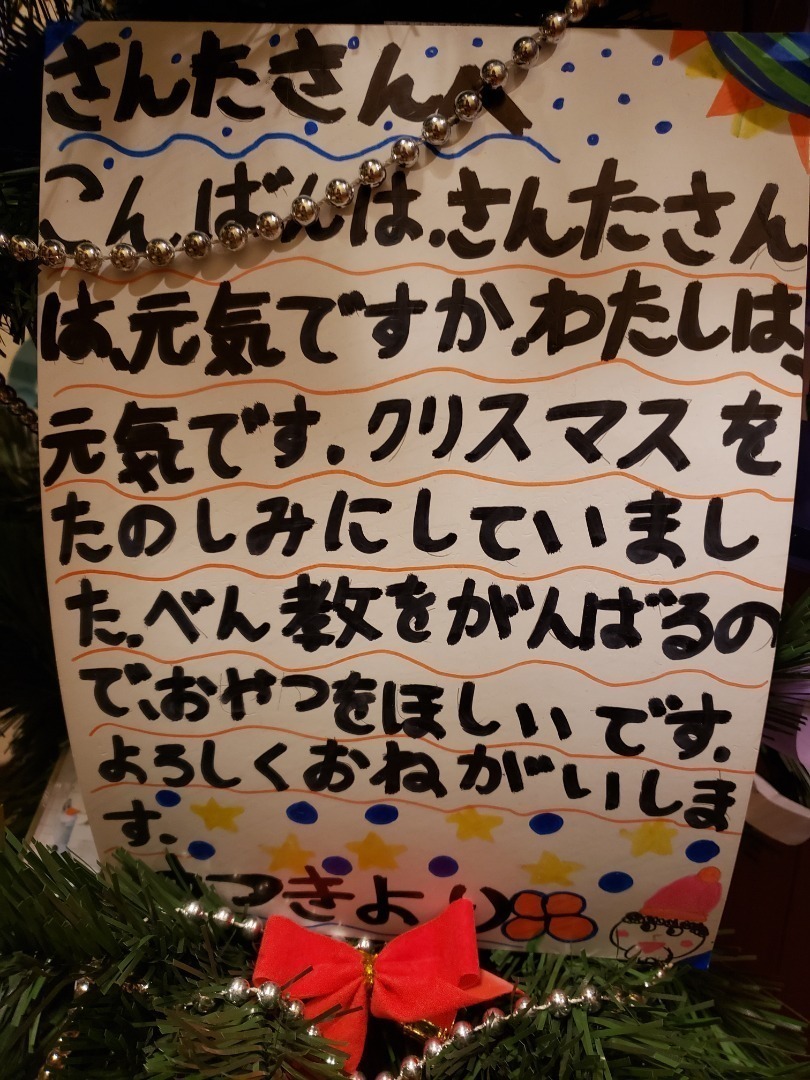 さんたさんへ
こん、ばんは.さんたさん
は、元気ですか.わたしは、
元気です.クリスマスを
たのしみにしていまし
た.べん教をがんばるの
で、おやつをほしいです.
よろしくおねがいしま
す.
さつきより